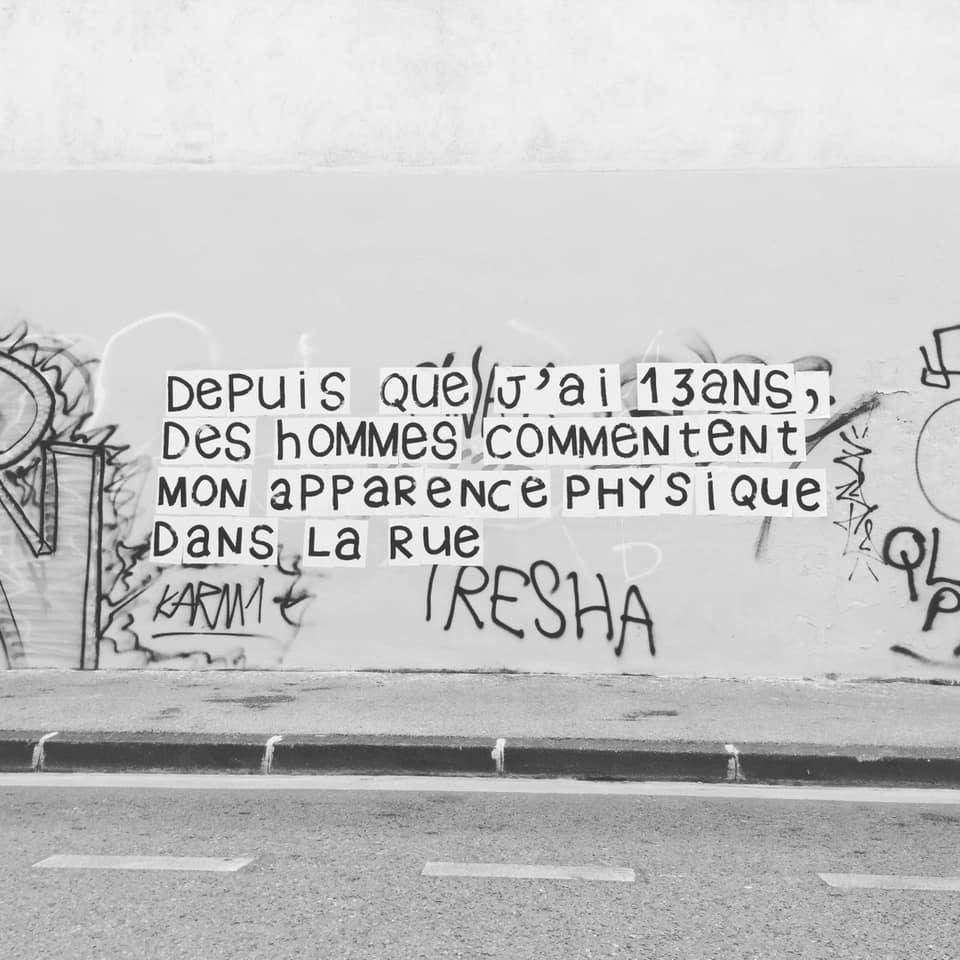 DePUiS QUe J'ai 13aNS,
DeS hOMMeS COMMeNteNt
MON aPPaReNCe PHYSiQUe
DaNS La RUe
KARM1
TRESHA
QL
P